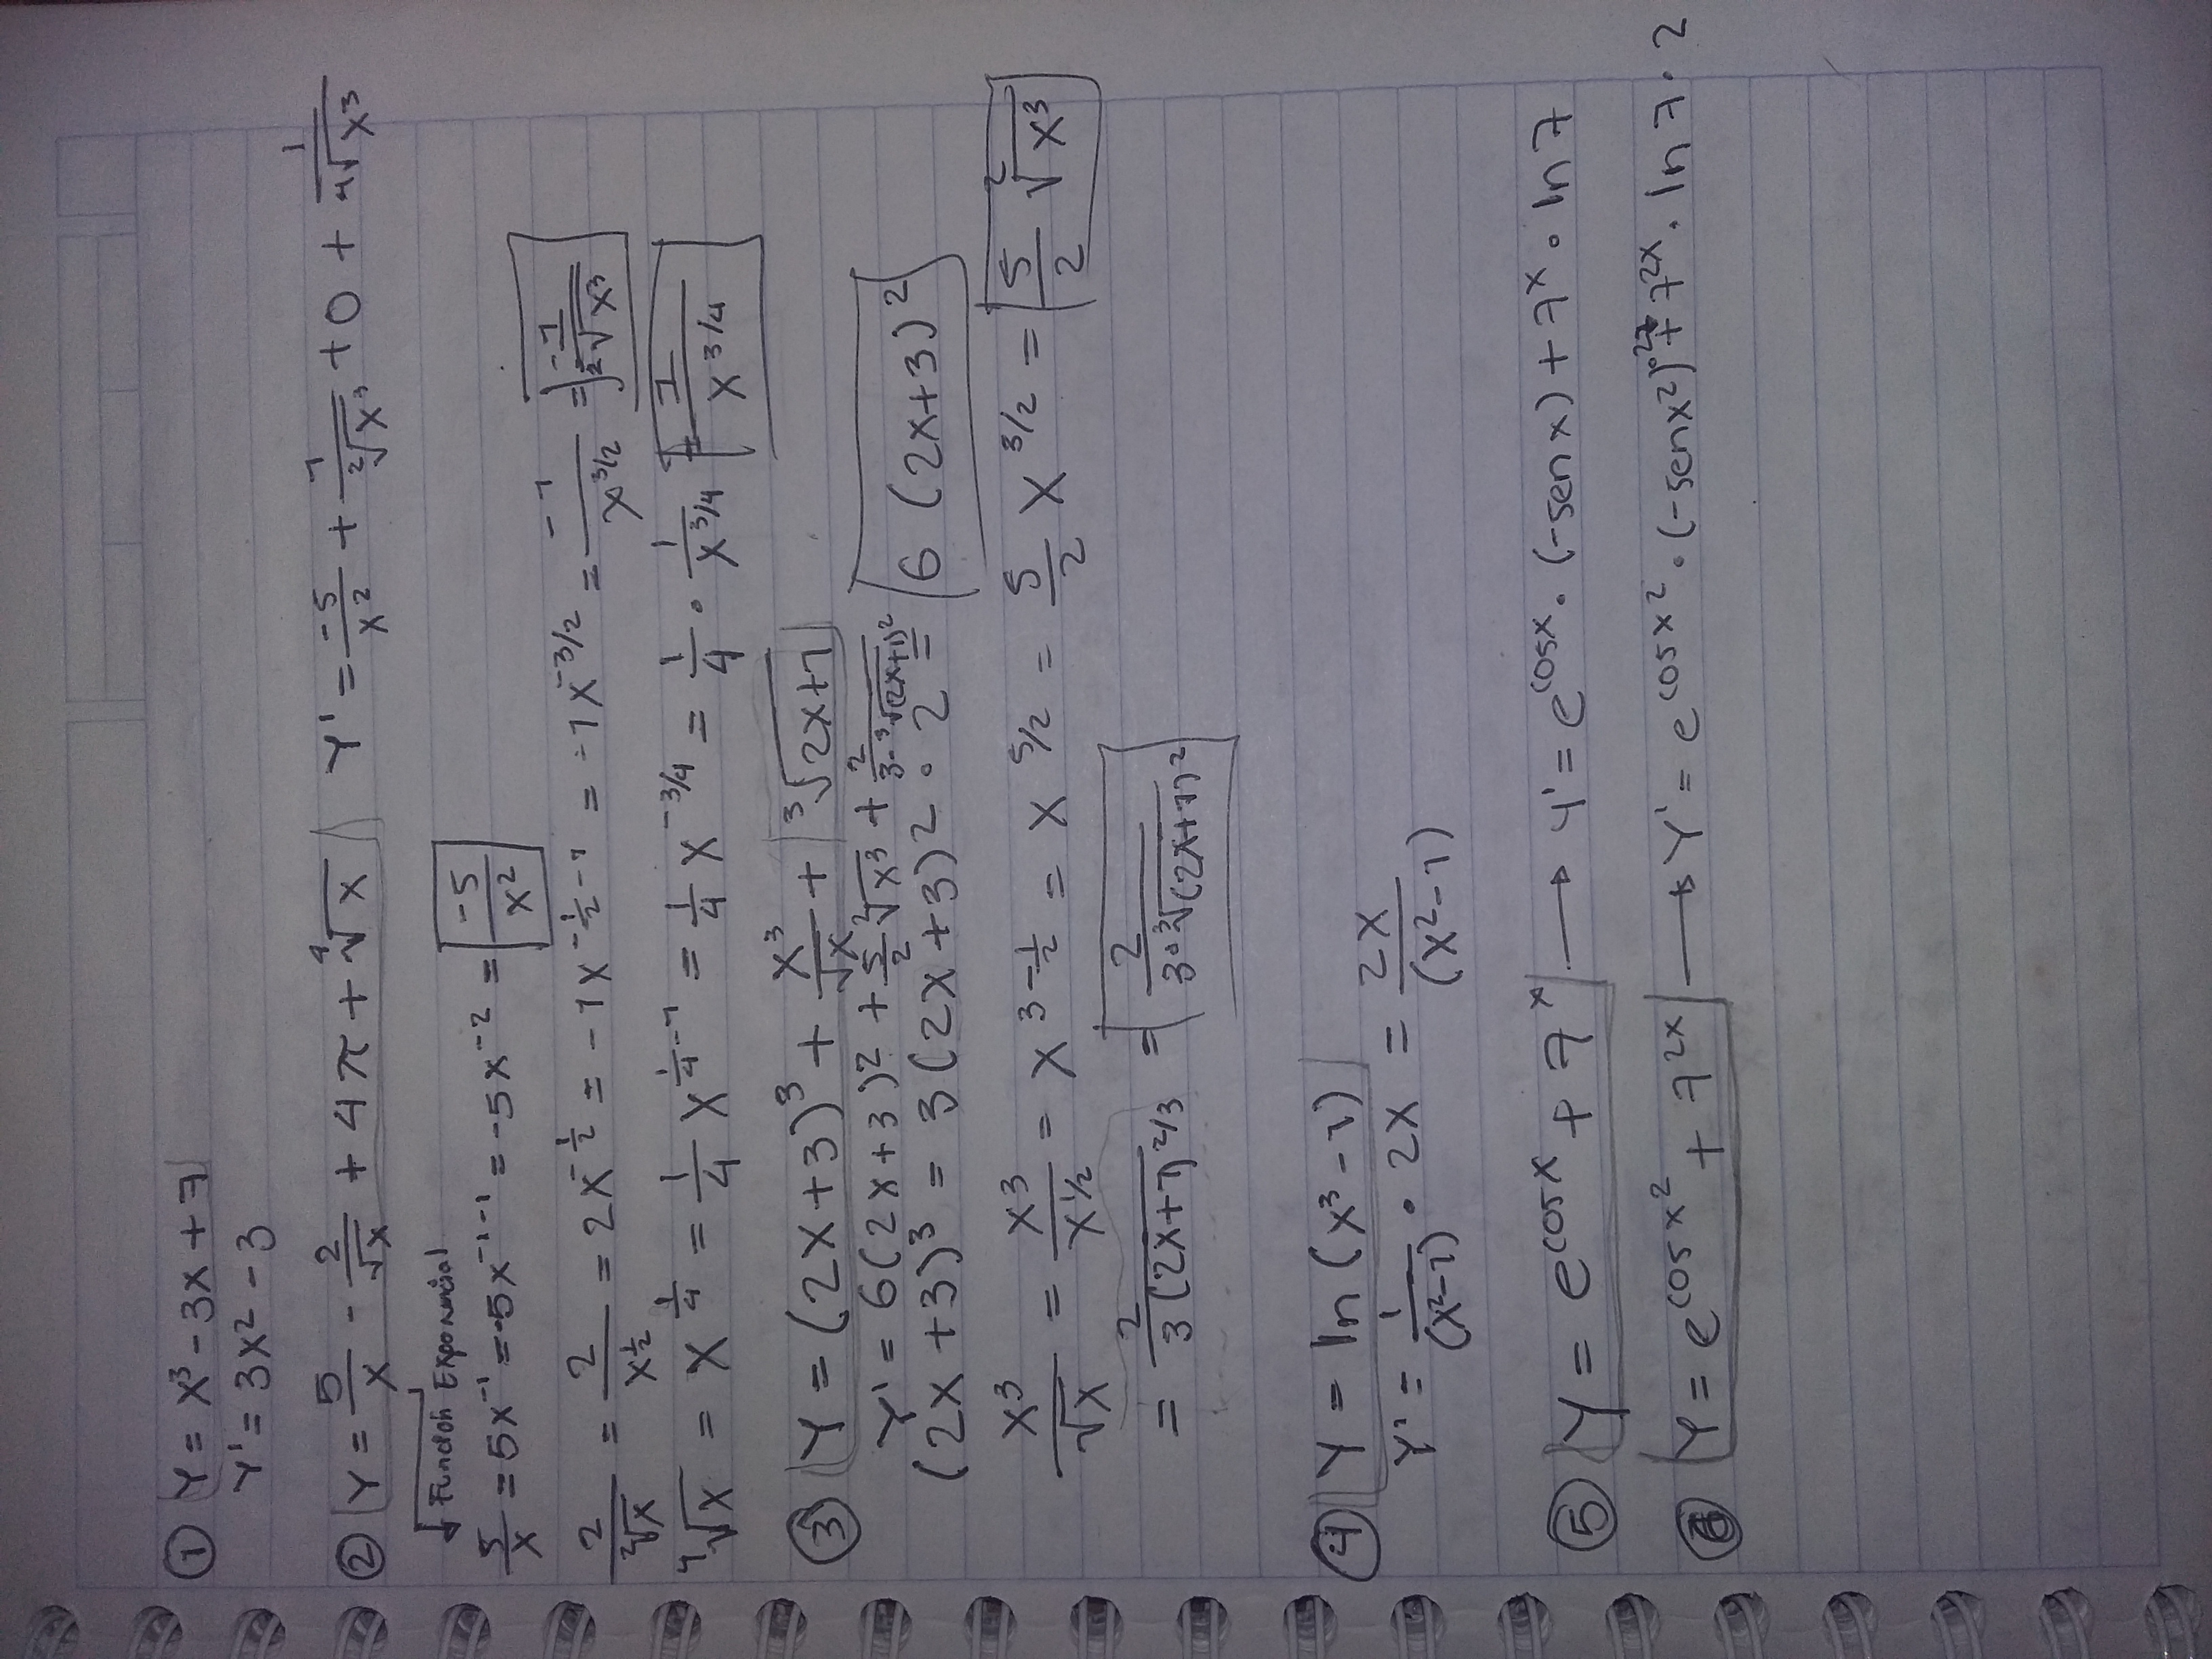 ① Y = x³ - 3x + 7
Y' = 3x² - 3
② Y = 5/x - 2/√x + 4π + ⁴√x    Y' = -5/x² + 1/²√x³ + 0 + 1/⁴√x³
Función Exponencial
5/x = 5x⁻¹ = -5x⁻¹⁻¹ = -5x⁻² = -5/x²
2/²√x = 2/x^(1/2) = 2x^(-1/2) = -1x^(-1/2-1) = -1x^(-3/2) = -1/x^(3/2) = -1/²√x³
⁴√x = x^(1/4) = 1/4 x^(1/4-1) = 1/4 x^(-3/4) = 1/4 · 1/x^(3/4) = 1/x^(3/4)
③ Y = (2x+3)³ + x³/√x + ³√2x+1
Y' = 6(2x+3)² + 5/2 ²√x³ + 2/3·³√(2x+1)²
(2x+3)³ = 3(2x+3)² · 2 = 6 (2x+3)²
x³/√x = x³/x^(1/2) = x^(3-1/2) = x^(5/2) = 5/2 x^(3/2) = 5/2 ²√x³
= 2/3(2x+1)^(2/3) = 2/3·³√(2x+1)²
④ Y = ln (x³-1)
Y' = 1/(x²-1) · 2x = 2x/(x²-1)
⑤ y = e^(cosx) + 7^x → y' = e^(cosx) · (-senx) + 7^x · ln 7
⑥ Y = e^(cosx²) + 7^(2x) → Y' = e^(cosx²) · (-senx²)·2x + 7^(2x) · ln 7 · 2